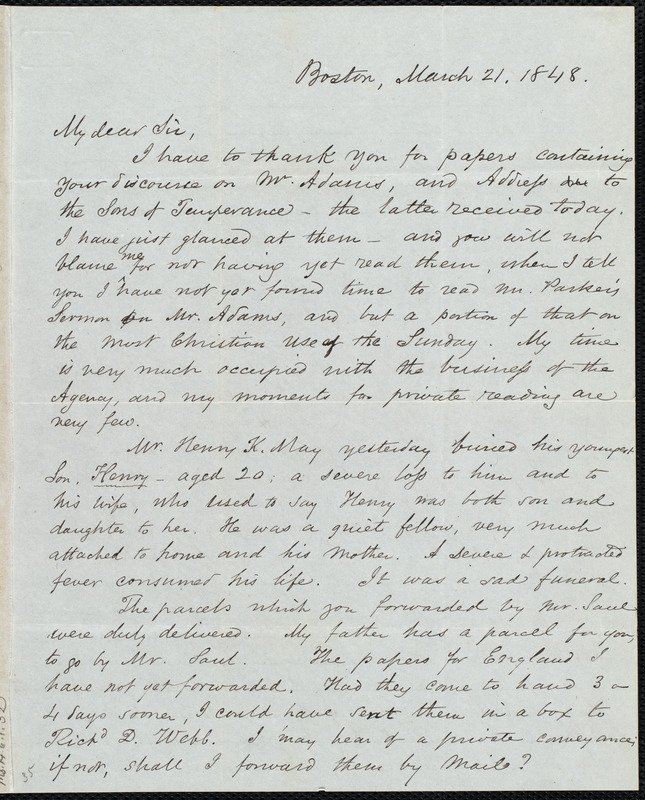 Boston, March 21. 1848.
My dear Sir,
I have to thank you for papers containing
your discourse on Mr. Adams, and Address to
the Sons of Temperance - the latter received today.
I have just glanced at them - and you will not
blame me for not having yet read them, when I tell
you I have not yet found time to read Mr. Parker's
Sermon on Mr. Adams, and but a portion of that on
the most Christian use of the Sunday. My time
is very much occupied with the business of the
Agency, and my moments for private reading are
very few.
Mr. Henry K. May yesterday buried his youngest
Son, Henry - aged 20; a severe loss to him and to
his wife, who used to say Henry was both son and
daughter to her. He was a quiet fellow, very much
attached to home and his mother. A severe & protracted
fever consumed his life. It was a sad funeral.
The parcels which you forwarded by Mr. Saul
were duly delivered. My father has a parcel for you,
to go by Mr. Saul. The papers for England I
have not yet forwarded. Had they come to hand 3 or
4 days sooner, I could have sent them in a box to
Richd D. Webb. I may hear of a private conveyance;
if not, shall I forward them by Mail?
35